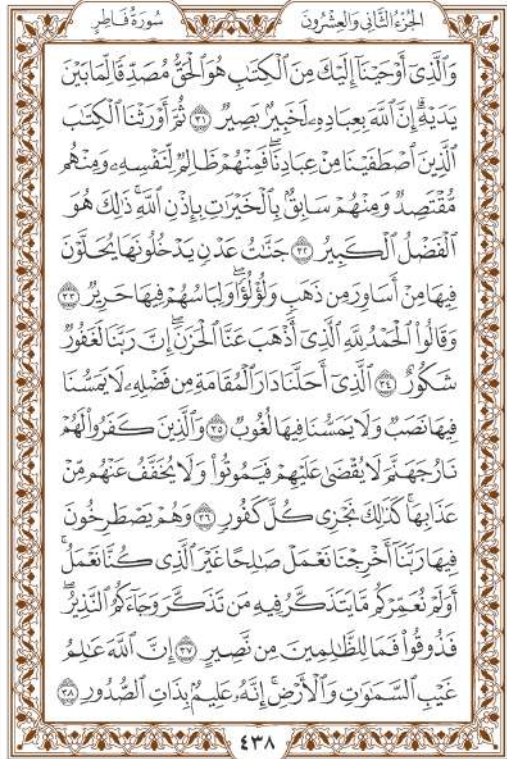 الجُزْءُ الثَّانِي وَالعِشْرُونَ
سُورَةُ فَاطِرٍ
وَٱلَّذِيٓ أَوۡحَيۡنَآ إِلَيۡكَ مِنَ ٱلۡكِتَٰبِ هُوَ ٱلۡحَقُّ مُصَدِّقٗا لِّمَا بَيۡنَ
يَدَيۡهِۗ إِنَّ ٱللَّهَ بِعِبَادِهِۦ لَخَبِيرُۢ بَصِيرٞ ٣١ ثُمَّ أَوۡرَثۡنَا ٱلۡكِتَٰبَ
ٱلَّذِينَ ٱصۡطَفَيۡنَا مِنۡ عِبَادِنَاۖ فَمِنۡهُمۡ ظَالِمٞ لِّنَفۡسِهِۦ وَمِنۡهُم
مُّقۡتَصِدٞ وَمِنۡهُمۡ سَابِقُۢ بِٱلۡخَيۡرَٰتِ بِإِذۡنِ ٱللَّهِۚ ذَٰلِكَ هُوَ
ٱلۡفَضۡلُ ٱلۡكَبِيرُ ٣٢ جَنَّٰتُ عَدۡنٖ يَدۡخُلُونَهَا يُحَلَّوۡنَ
فِيهَا مِنۡ أَسَاوِرَ مِن ذَهَبٖ وَلُؤۡلُؤٗاۖ وَلِبَاسُهُمۡ فِيهَا حَرِيرٞ ٣٣
وَقَالُواْ ٱلۡحَمۡدُ لِلَّهِ ٱلَّذِيٓ أَذۡهَبَ عَنَّا ٱلۡحَزَنَۖ إِنَّ رَبَّنَا لَغَفُورٞ
شَكُورٌ ٣٤ ٱلَّذِيٓ أَحَلَّنَا دَارَ ٱلۡمُقَامَةِ مِن فَضۡلِهِۦ لَا يَمَسُّنَا
فِيهَا نَصَبٞ وَلَا يَمَسُّنَا فِيهَا لُغُوبٞ ٣٥ وَٱلَّذِينَ كَفَرُواْ لَهُمۡ
نَارُ جَهَنَّمَ لَا يُقۡضَىٰ عَلَيۡهِمۡ فَيَمُوتُواْ وَلَا يُخَفَّفُ عَنۡهُم مِّنۡ
عَذَابِهَاۚ كَذَٰلِكَ نَجۡزِي كُلَّ كَفُورٖ ٣٦ وَهُمۡ يَصۡطَرِخُونَ
فِيهَا رَبَّنَآ أَخۡرِجۡنَا نَعۡمَلۡ صَٰلِحًا غَيۡرَ ٱلَّذِي كُنَّا نَعۡمَلُۚ
أَوَلَمۡ نُعَمِّرۡكُم مَّا يَتَذَكَّرُ فِيهِ مَن تَذَكَّرَ وَجَآءَكُمُ ٱلنَّذِيرُۖ
فَذُوقُواْ فَمَا لِلظَّٰلِمِينَ مِن نَّصِيرٍ ٣٧ إِنَّ ٱللَّهَ عَٰلِمُ
غَيۡبِ ٱلسَّمَٰوَٰتِ وَٱلۡأَرۡضِۚ إِنَّهُۥ عَلِيمُۢ بِذَاتِ ٱلصُّدُورِ ٣٨
٤٣٨